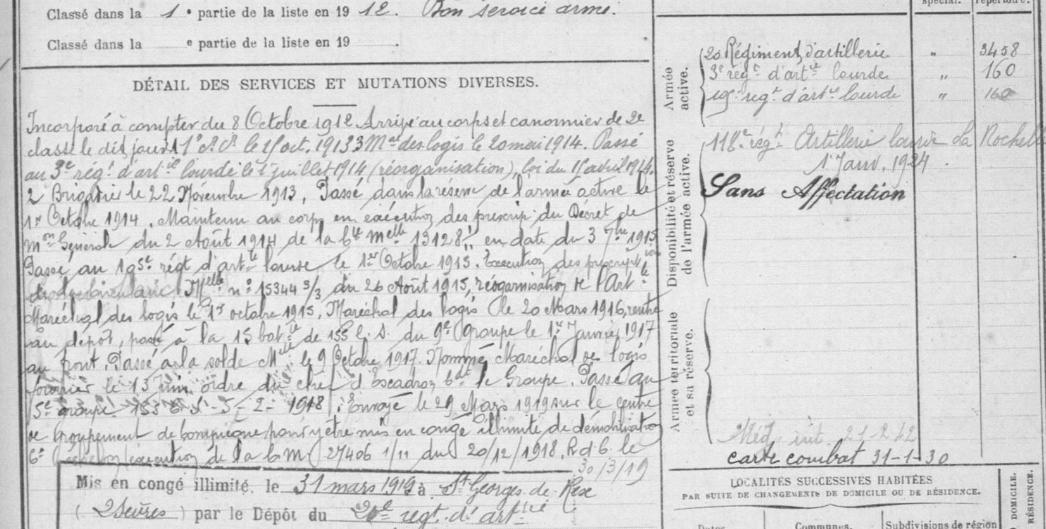 Classé dans la 1e partie de la liste en 1912. Bon service armé.
Classé dans la e partie de la liste en 19 .
DÉTAIL DES SERVICES ET MUTATIONS DIVERSES.
Incorporé à compter du 8 Octobre 1912 Arrivé au corps et canonnier de 2e
classe le dit jour
au 3e régt d'artie lourde le 1 juillet 1914 (réorganisation), loi du 15 avril 1914.
2 Brigadier le 22 Novembre 1913, Passé dans la réserve de l'armée active le
1er Octobre 1914. Maintenu au corps en exécution des prescrip. du Décret de
Mon Générale du 2 Août 1914 de la Cte Melle 13128 en date du 3 7bre 1915
Passé au 105e régt d'artie lourde le 1er Octobre 1915. Exécution des prescript
Circulaire Melle n° 15344 3/3 du 26 Août 1915, réorganisation de l'Artie
Maréchal des logis le 1er octobre 1915, Maréchal des logis le 20 Mars 1916, rentré
au dépôt, passé à la 15 batie de 155 L. S. du 9e Groupe le 1er Janvier 1917
au front. Passé à la solde Melle le 9 Octobre 1917. Nommé Maréchal des logis
fourrier le 13 juin ordre du chef d'Escadron Cdt le Groupe. Passé au
5e groupe 155 5-2-1918. Envoyé le 29 Mars 1919 sur le centre
de Groupement de Compiègne pour y être mis en congé illimité de démobilisation
6e échelon exécution de la C M 27406 1/11 du 20/12/1918. R d C le
30/3/19
Mis en congé illimité, le 31 mars 1919 à St Georges de Rexe
(2 Sèvres) par le Dépôt du 20e régt d'artie
spécial.
répertoire.
Armée active.
20 Régiment d'artillerie " 3458
3e régt d'artie lourde " 160
régt d'artie lourde " 160
Disponibilité et réserve de l'armée active.
118e régt Artillerie lourde La Rochelle
1 Janv. 1924
Sans Affectation
Armée territoriale et sa réserve.
carte combat 31-1-30
LOCALITÉS SUCCESSIVES HABITÉES
PAR SUITE DE CHANGEMENTS DE DOMICILE OU DE RÉSIDENCE.
Dates. Communes. Subdivisions de région
DOMICILE.
RÉSIDENCE.